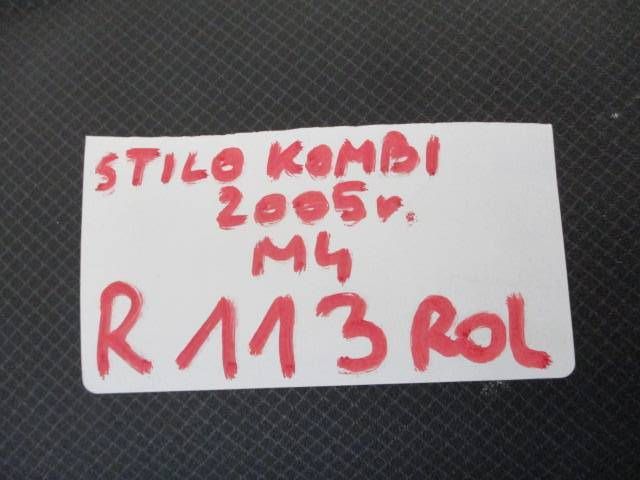 STILO KOMBI
2005r.
M4
R 113 ROL